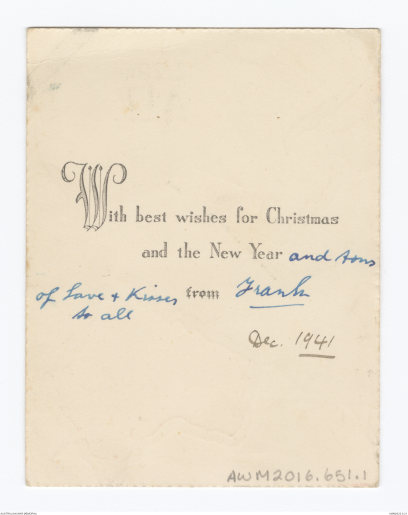 With best wishes for Christmas
and the New Year and tons
of Love + Kisses from Frank
to all
Dec. 1941
AWM2016.651.1